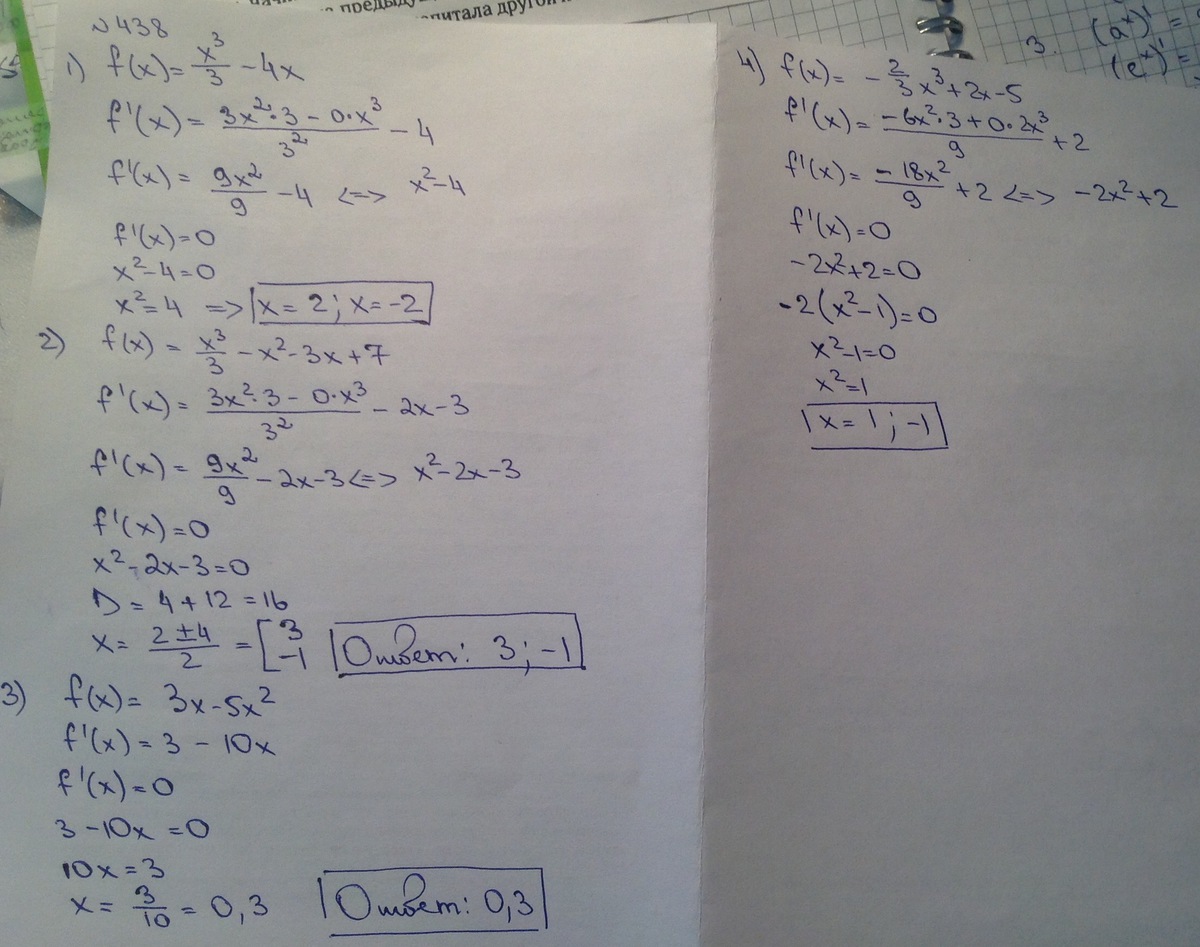 №438
1) f(x) = x³/3 - 4x
f'(x) = (3x²·3 - 0·x³)/3² - 4
f'(x) = 9x²/9 - 4 <=> x²-4
f'(x)=0
x²-4=0
x²=4 => x=2; x=-2
2) f(x) = x³/3 - x² - 3x + 7
f'(x) = (3x²·3 - 0·x³)/3² - 2x - 3
f'(x) = 9x²/9 - 2x - 3 <=> x²-2x-3
f'(x)=0
x²-2x-3=0
D = 4+12 = 16
x = (2±4)/2 = [3 -1 Ответ: 3; -1
3) f(x) = 3x-5x²
f'(x) = 3 - 10x
f'(x)=0
3-10x=0
10x=3
x = 3/10 = 0,3 Ответ: 0,3
4) f(x) = -2/3 x³+2x-5
f'(x) = (-6x²·3+0·2x³)/9 + 2
f'(x) = -18x²/9 + 2 <=> -2x²+2
f'(x)=0
-2x²+2=0
-2(x²-1)=0
x²-1=0
x²=1
x=1; -1
питала другой
3. (aˣ)' =
(eˣ)' =